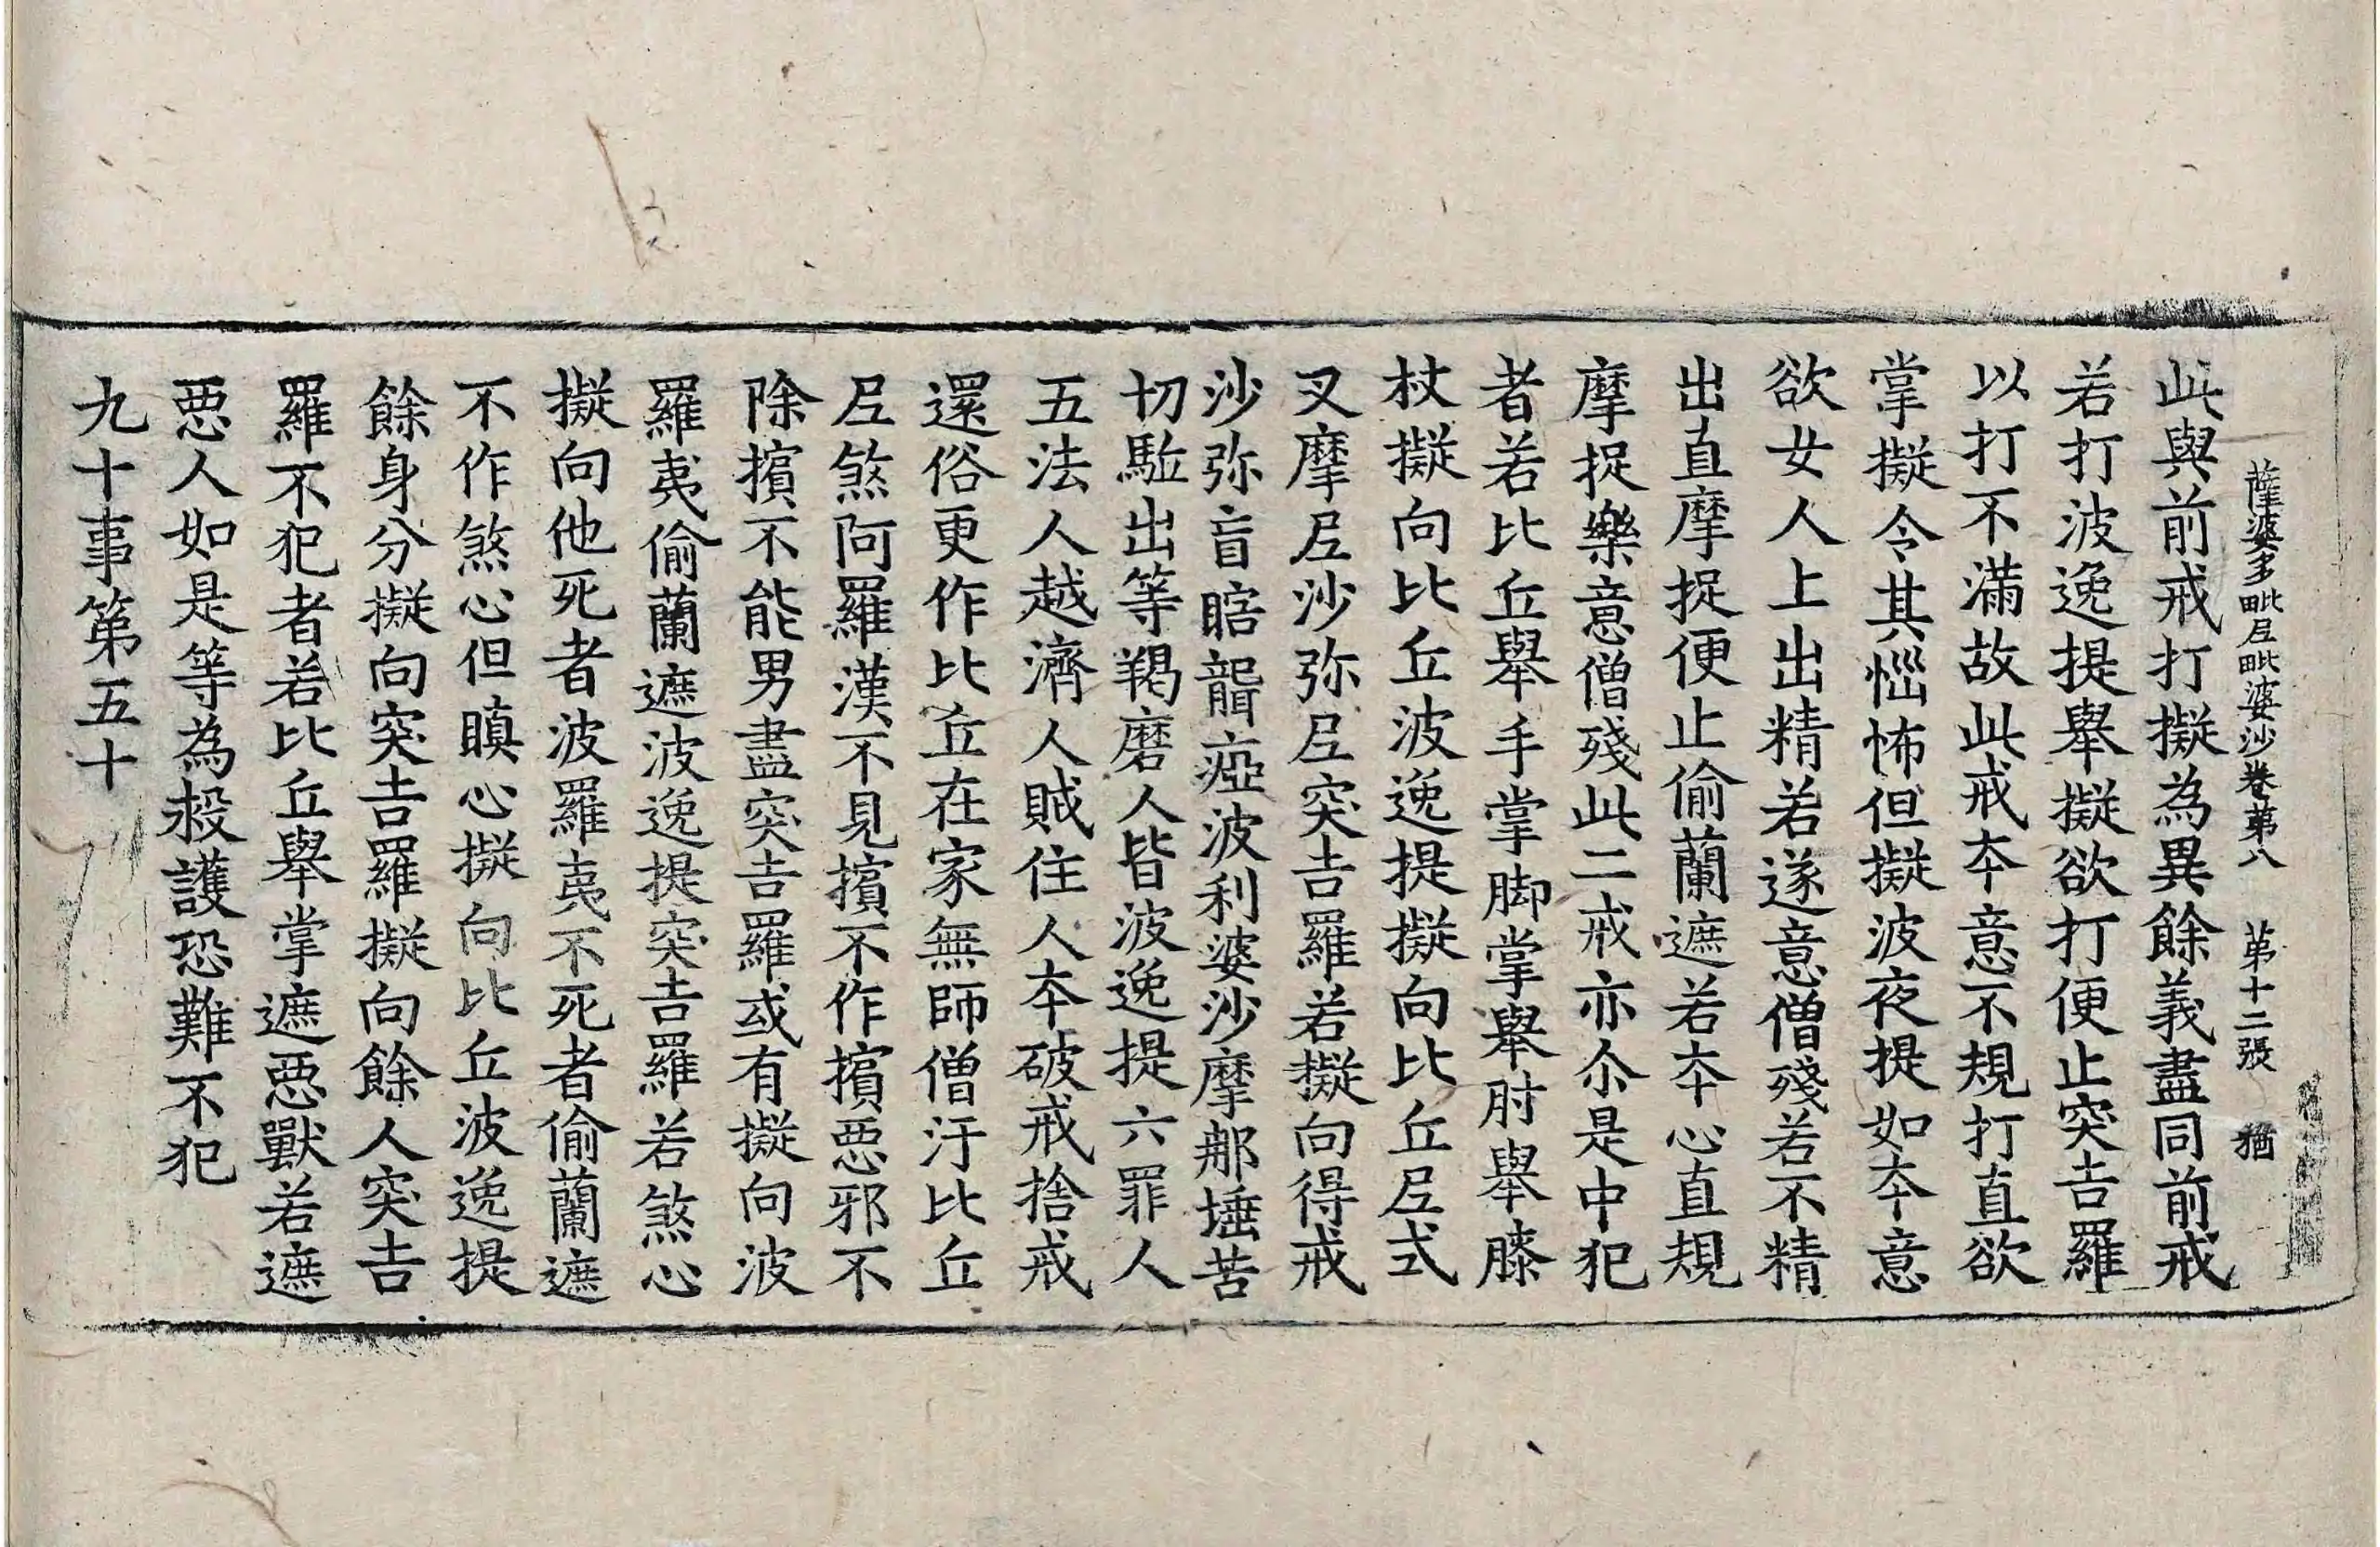 薩婆多毗尼毗婆沙卷第八 第十二張 猶
此與前戒打擬為異餘義盡同前戒
若打波逸提舉擬欲打便止突吉羅
以打不滿故此戒本意不規打直欲
掌擬令其惱怖但擬波夜提如本意
欲女人上出精若遂意僧殘若不精
出直摩捉便止偷蘭遮若本心直規
摩捉樂意僧殘此二戒亦尒是中犯
者若比丘舉手掌脚掌舉肘舉膝
杖擬向比丘波逸提擬向比丘尼式
叉摩尼沙弥尼突吉羅若擬向得戒
沙弥盲瞎聾瘂波利婆沙摩那埵苦
切駈出等羯磨人皆波逸提六罪人
五法人越濟人賊住人本破戒捨戒
還俗更作比丘在家無師僧汙比丘
尼煞阿羅漢不見擯不作擯惡邪不
除擯不能男盡突吉羅或有擬向波
羅夷偷蘭遮波逸提突吉羅若煞心
擬向他死者波羅夷不死者偷蘭遮
不作煞心但瞋心擬向比丘波逸提
餘身分擬向突吉羅擬向餘人突吉
羅不犯者若比丘舉掌遮惡獸若遮
惡人如是等為救護恐難不犯
九十事第五十